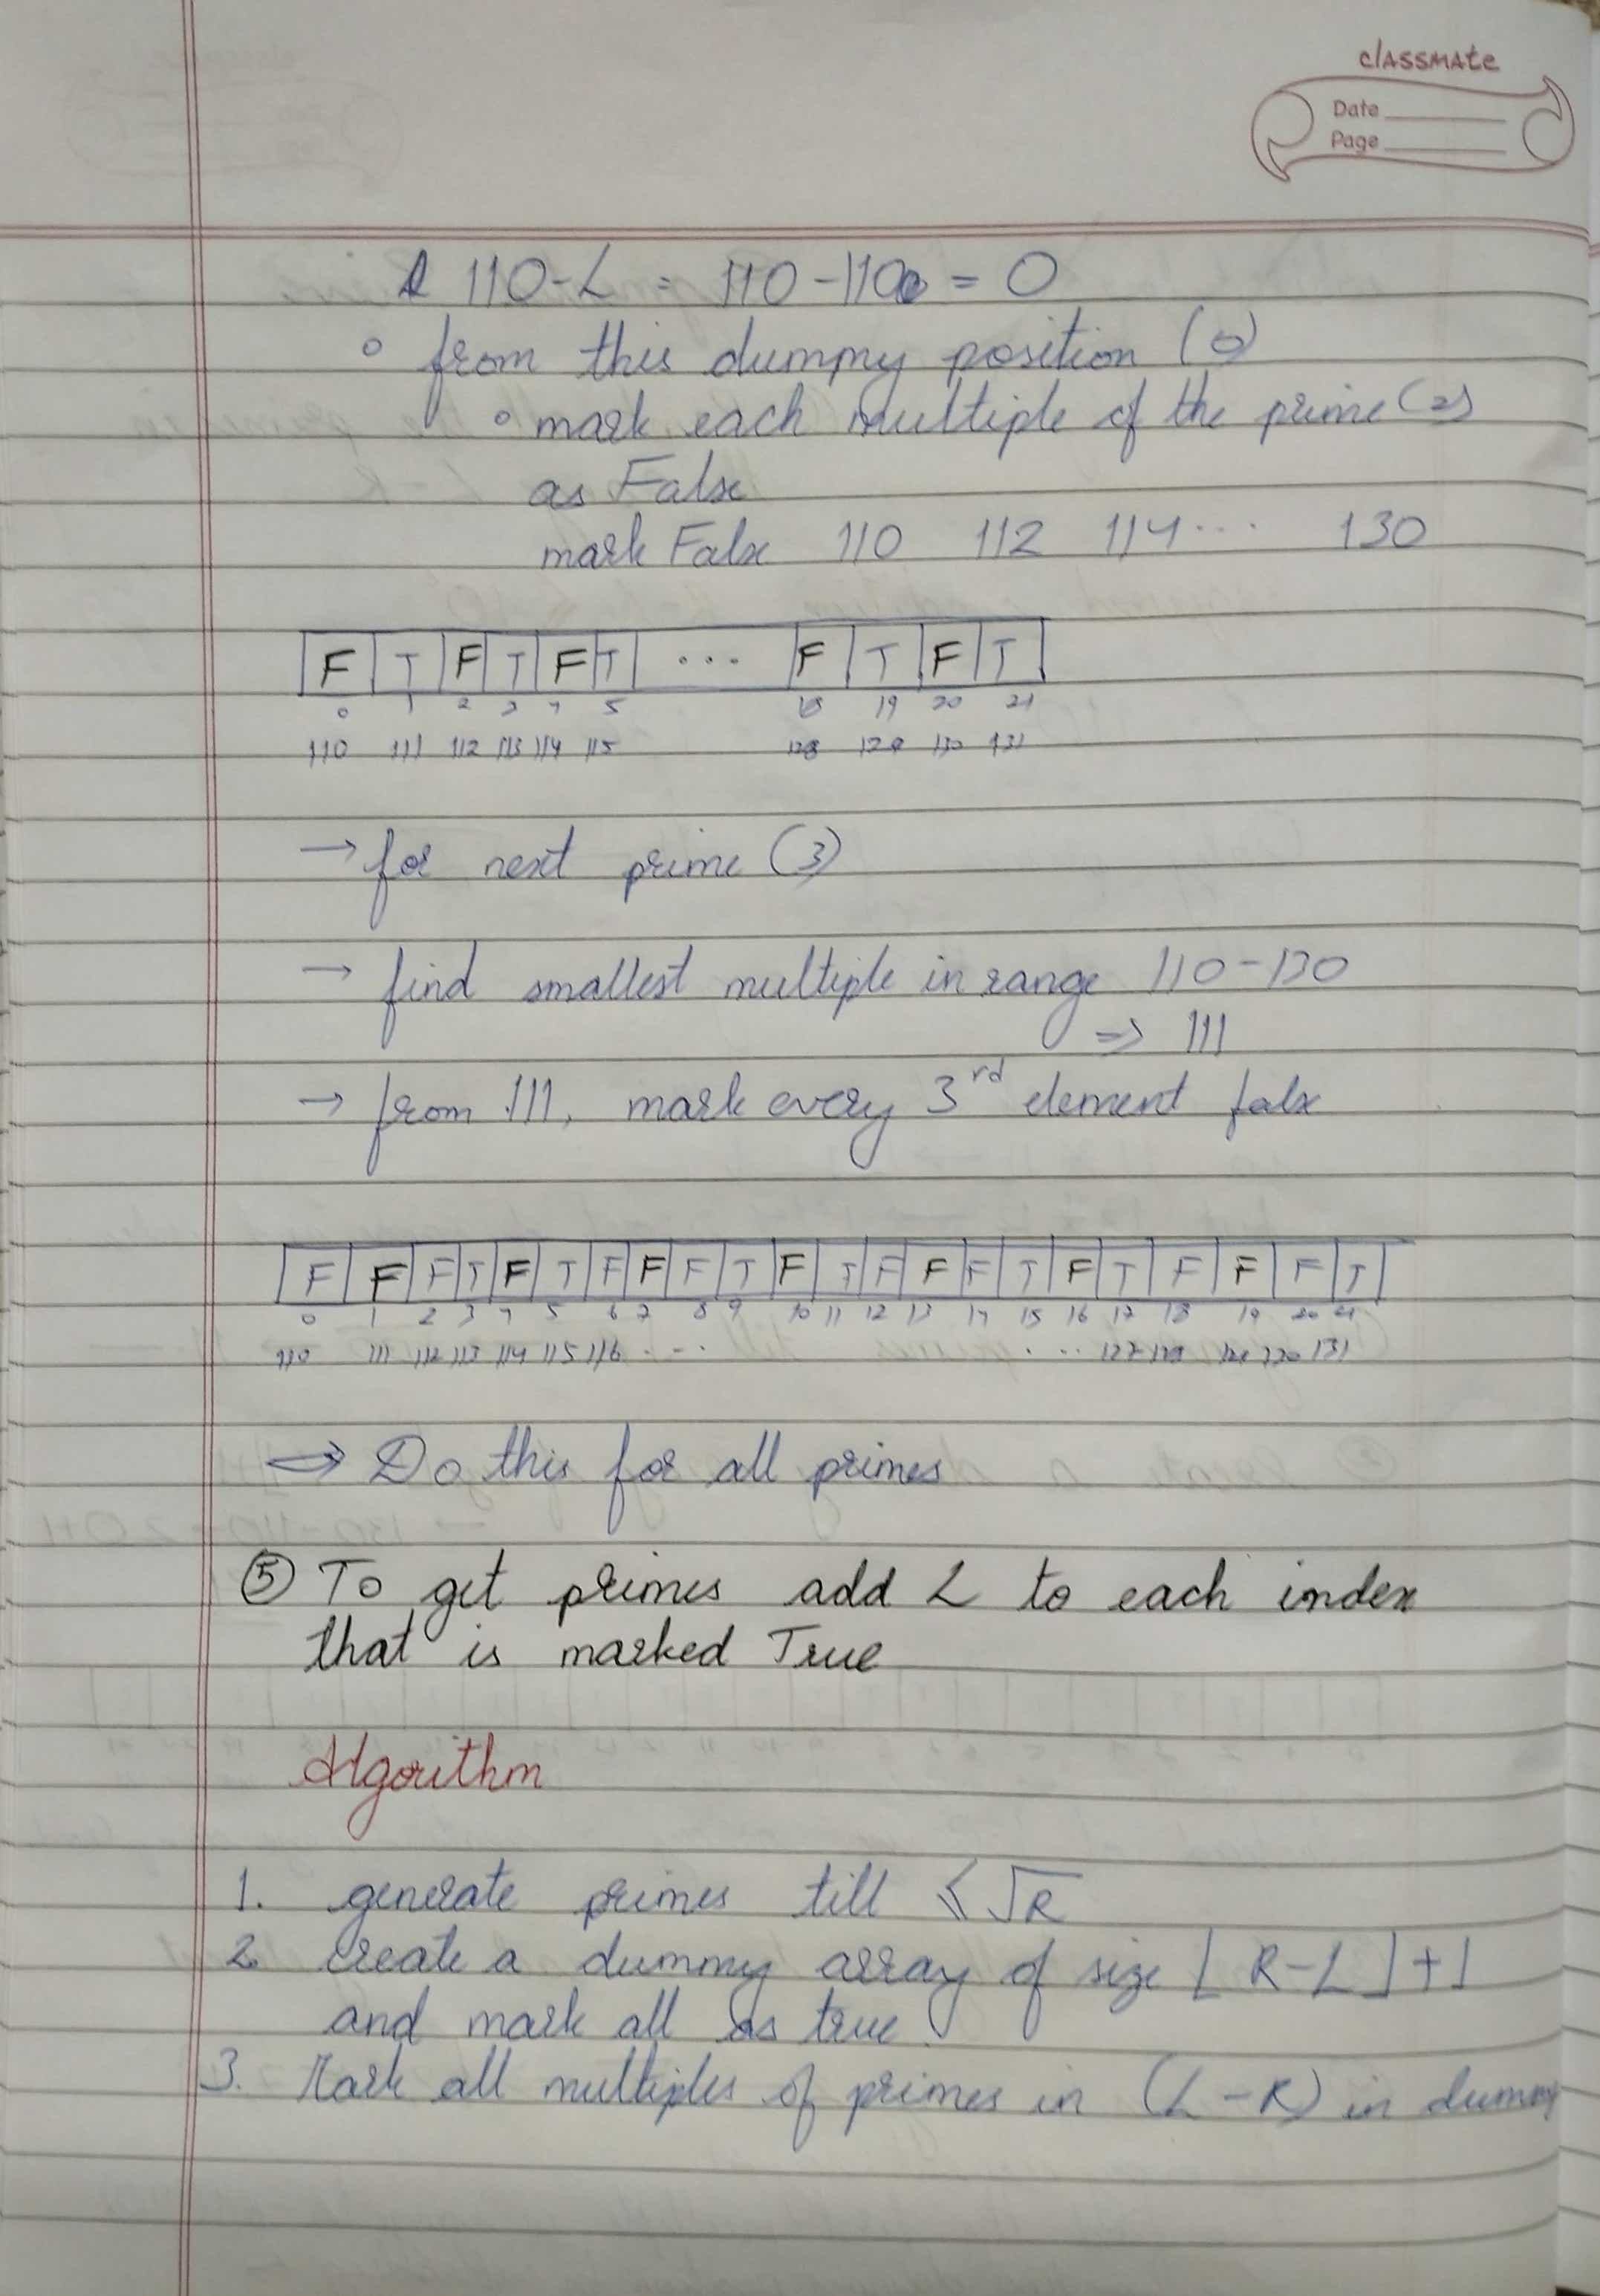 classmate
Date
Page
110-L = 110-110 = 0
◦ from this dummy position (0)
◦ mark each multiple of the prime (2)
as False
mark False 110 112 114 ... 130
F T F T F T ... F T F T
0 1 2 3 4 5 18 19 20 21
110 111 112 113 114 115 128 129 130 131
→ for next prime (3)
→ find smallest multiple in range 110-130
⇒ 111
→ from 111, mark every 3rd element false
F F F T F T F F F T F T F F F T F T F F F T
0 1 2 3 4 5 6 7 8 9 10 11 12 13 14 15 16 17 18 19 20 21
110 111 112 113 114 115 116 ... ... 127 128 129 130 131
⇒ Do this for all primes
⑤ To get primes add L to each index
that is marked True
Algorithm
1. generate primes till ≤ √R
2. create a dummy array of size ⌊R-L⌋+1
and mark all as true.
3. Mark all multiples of primes in (L-R) in dummy